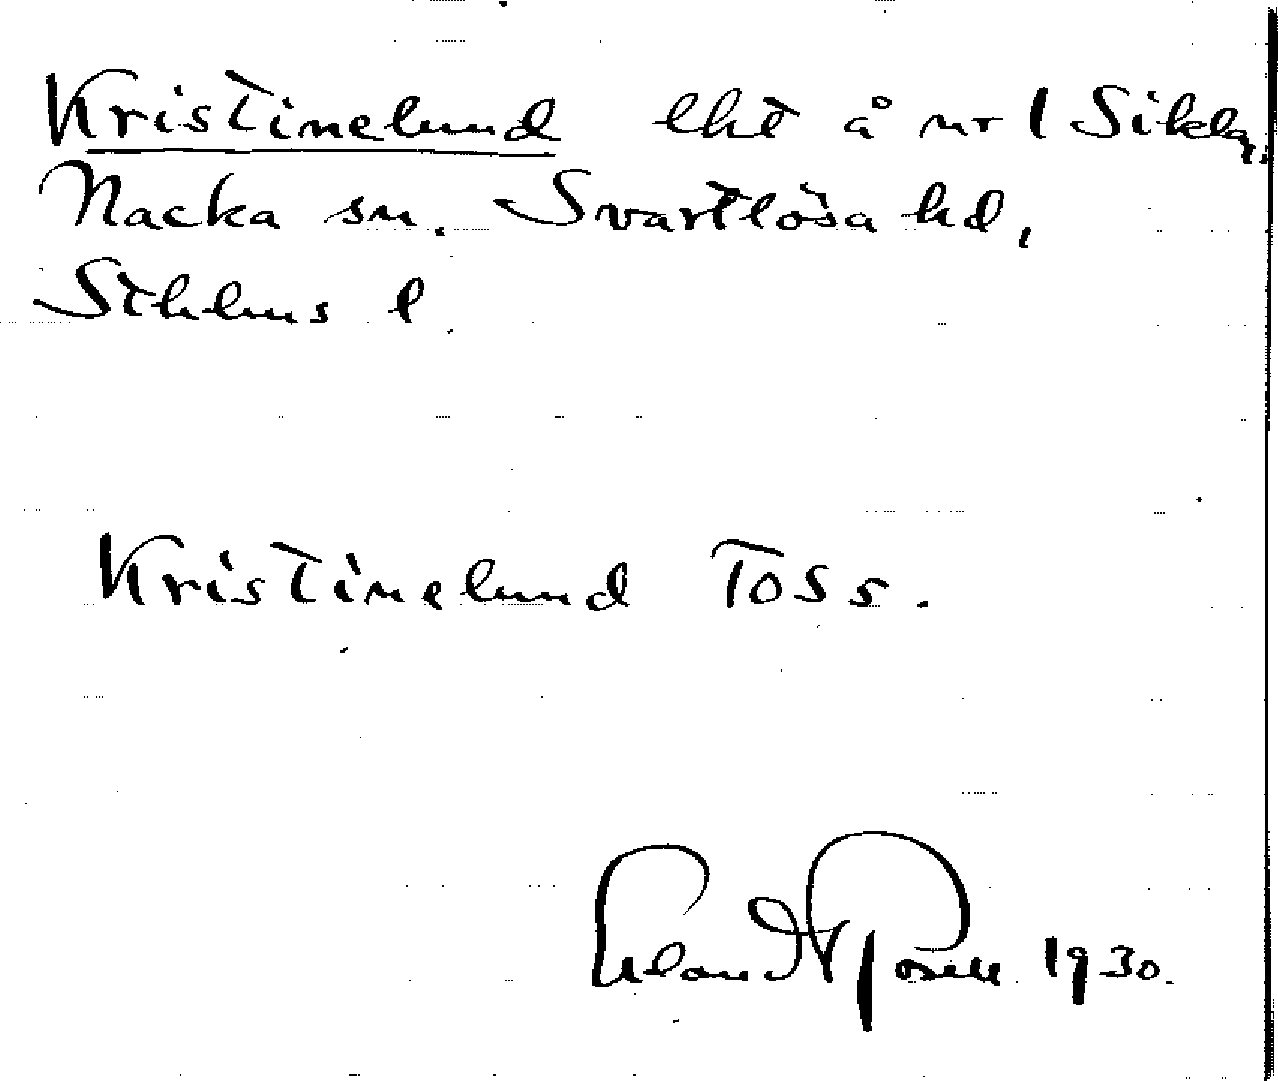 Kristinelund lht å nr 1 Sikla,
Nacka sn. Svartlösa hd,
Sthlms l.
Kristinelund Toss.
Erland Rosell 1930.